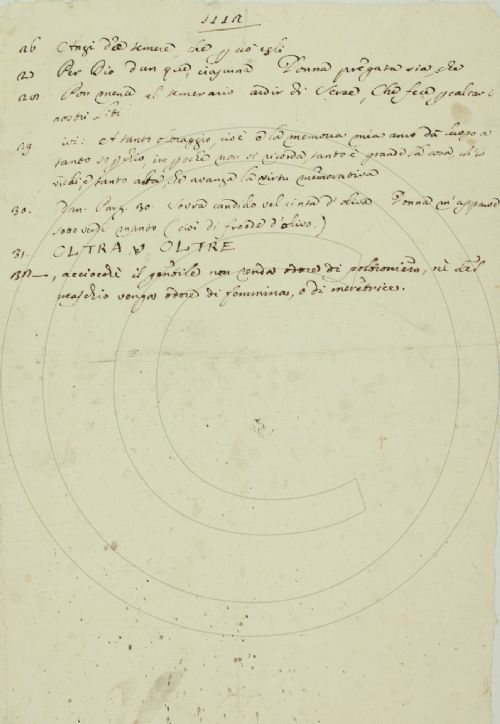 26 Anzi dee temere, che
27 Per Dio dunque, ciascuna Donna pregata sia, che
28 Pon mente al temerario ardir di Serse, Che fece per calcar i
nostri liti
29 ivi: A tanto oltraggio, cioè e la memoria mia anco dà luogo a
tanto soperchio, imperchè non si ricorda, tanto è grande la cosa, ch'io
vidi, e tanto alta, che avanza la virtu memorativa
30. Dan. Purg. 30. Sovra candido vel cinta d'oliva Donna m'apparve
sotto verde manto (cioè di fronde d'olivo.)
31. OLTRA, OLTRE
, acciocchè il gentile non renda odore di
maschio venga odore di femmina, o di meretrice.